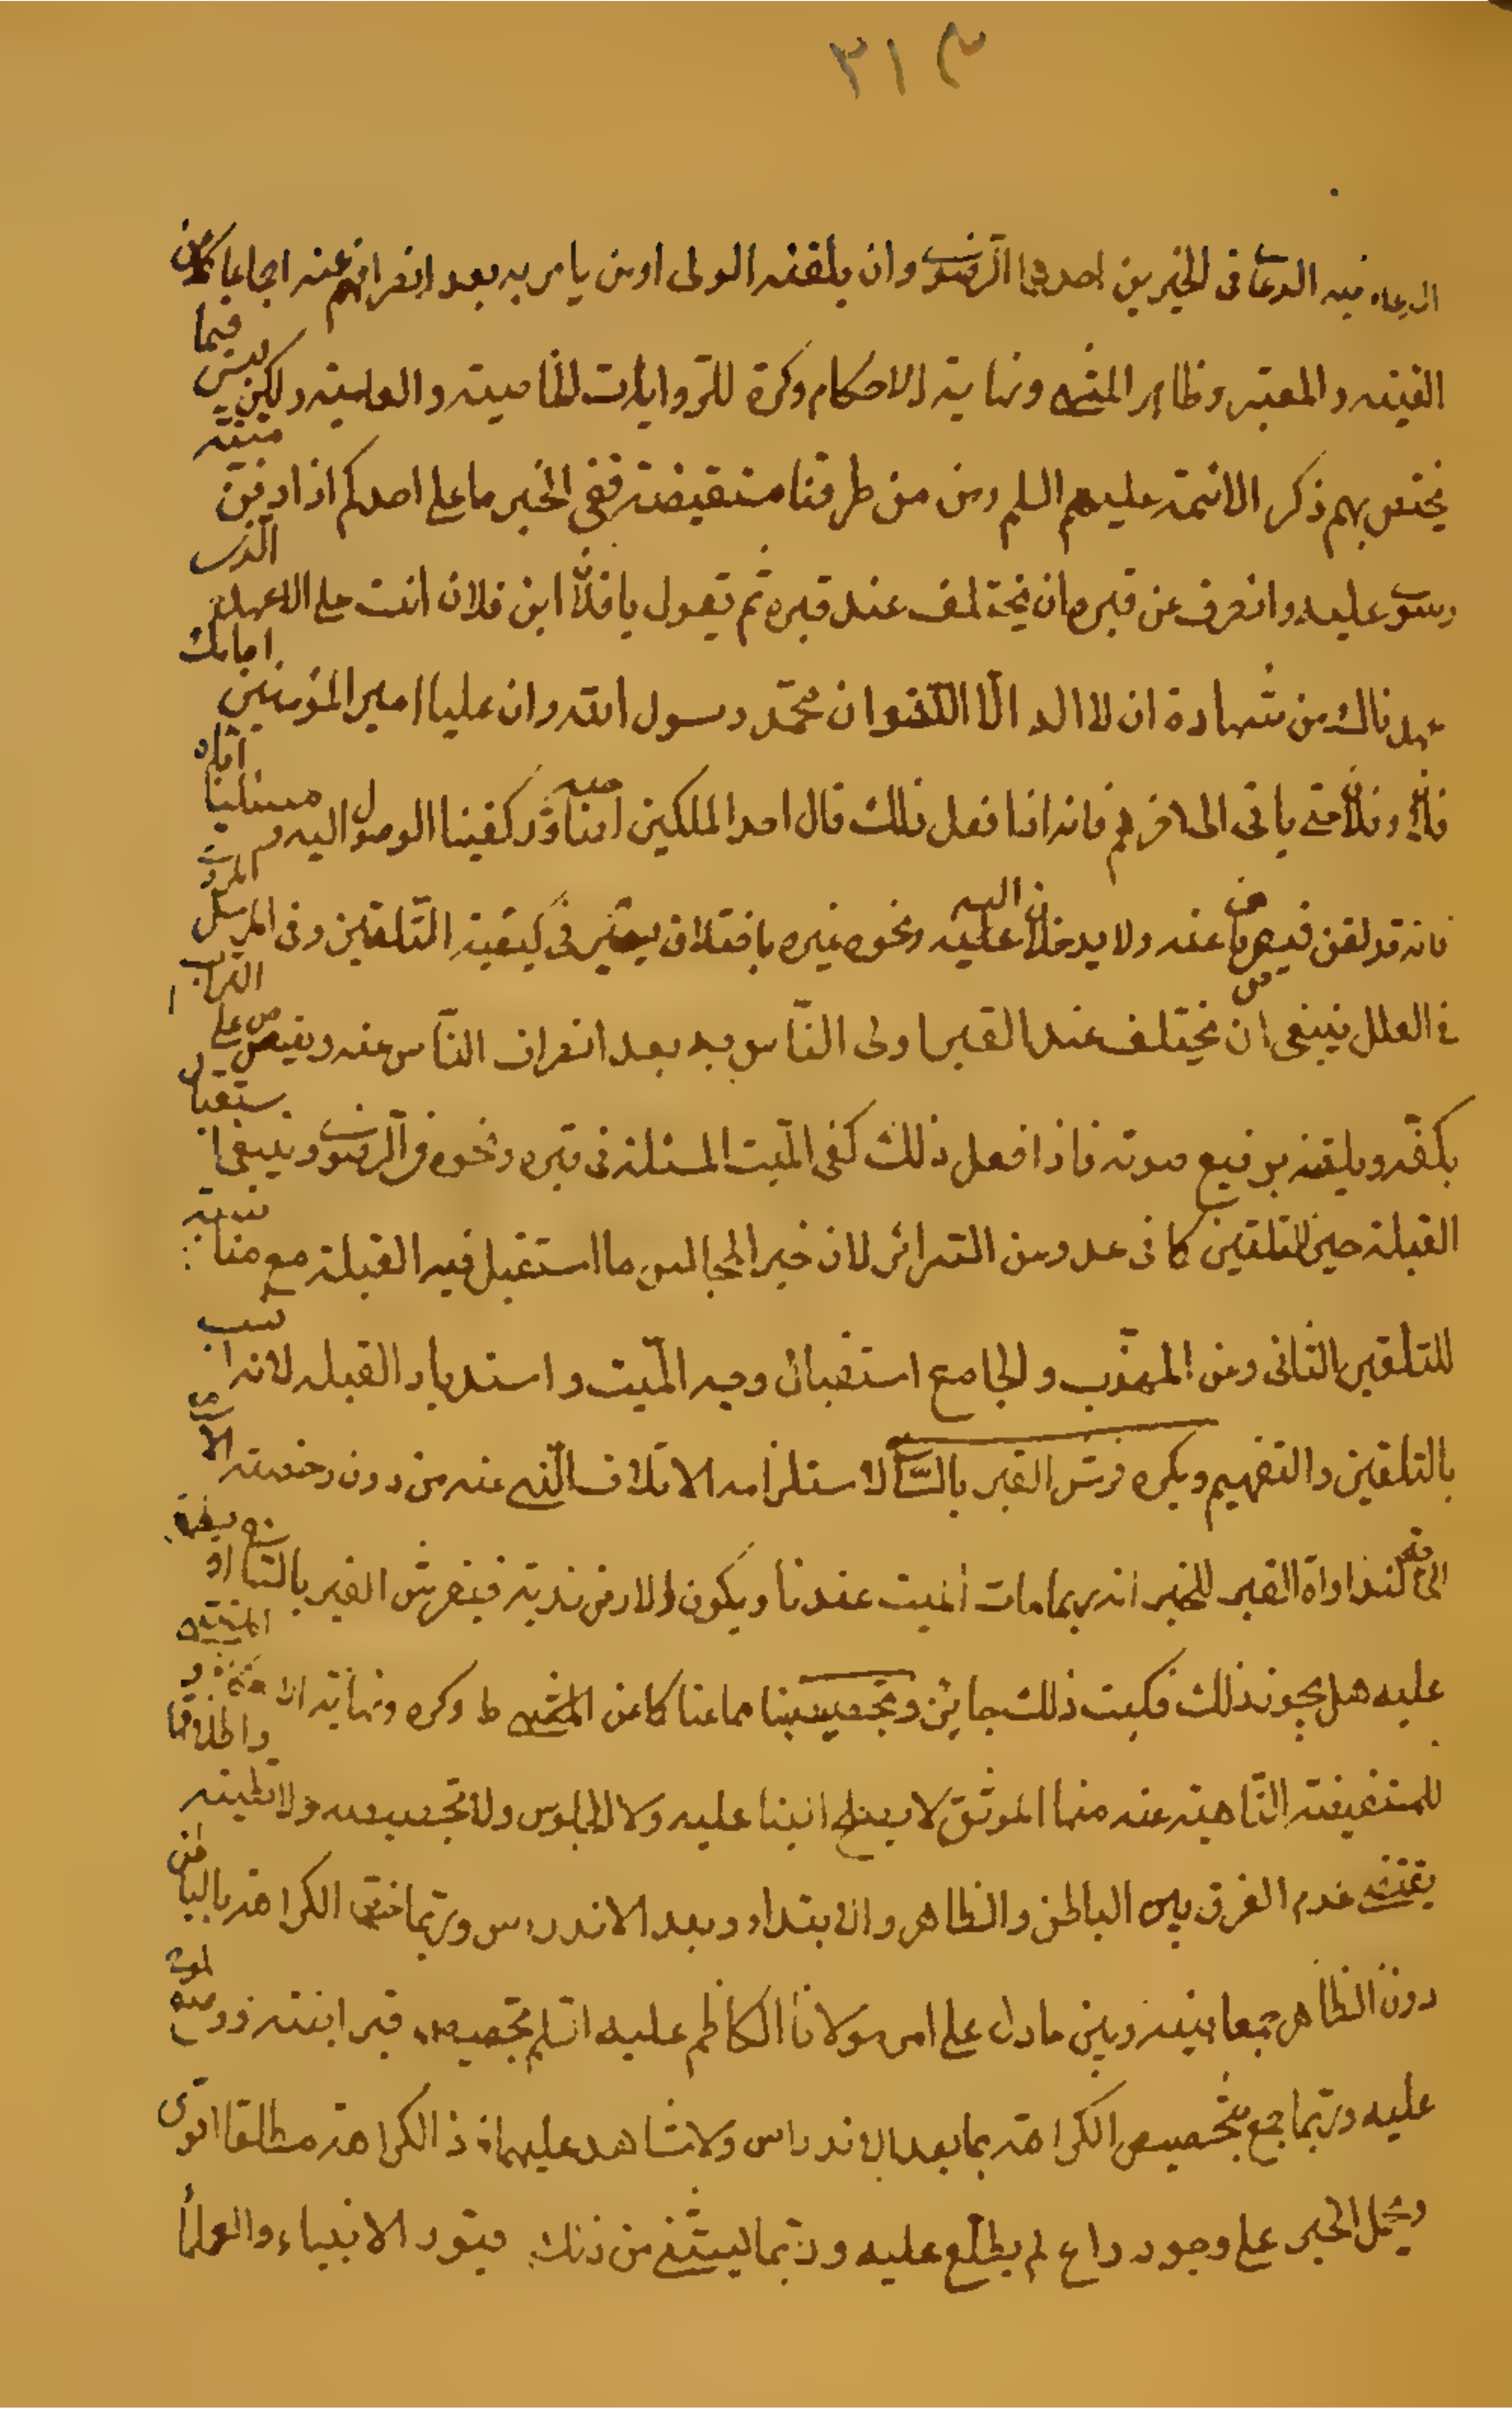 ٣١٢
الدعاء فيه الدعا فى الخبرين احدهما الرضوى وان يلقنه الولى او من يامر به بعد انصرافهم عنه اجماعا كما عن
الغنيه والمعتبر وظاهر المنتهى ونهاية الاحكام وكرة للروايات الخاصية والعامية ولكن ليس فيما
يختص بهم ذكر الائمة عليهم السلم وهى من طرقنا مستفيضة ففى الخبر ما على احدكم اذا دفن ميته
وسوى عليه وانصرف عن قبره ان يتخلف عند قبره ثم يقول يا فلان ابن فلان انت على العهد الذى
عهدناك من شهادة ان لا اله الا الله وان محمد رسول الله وان عليا امير المؤمنين امامك
فلان وفلان حتى ياتى الى اخرهم فانه اذا فعل ذلك قال احد الملكين لصاحبه قد كفينا الوصول اليه ومسئلتنا اياه
فانه قد لقن فينصرفان عنه ولا يدخلان اليه ونحوه غيره باختلاف يسير فى كيفية التلقين وفى المرسل المروى
فى العلل ينبغى ان يتخلف عند القبر اولى الناس به بعد انصراف الناس عنه ويقبض على التراب
بكفه ويلقنه برفيع صوته فاذا فعل ذلك كفى الميت المسئلة فى قبره ونحوه فى الرضوى وينبغى استقبال
القبلة حين التلقين كما فى عد وعن السرائر لان خير المجالس ما استقبل فيه القبلة مع مناسبته
للتلقين الثانى وعن المهذب والجامع استقبال وجه الميت واستدبار القبله لانه انسب
بالتلقين والتفهيم ويكره فرش القبر بالساج لاستلزامه الاتلاف المنهى عنه من دون رخصة الا
الى ضرورة كنداوة القبر للخبر انه ربما مات الميت عندنا ويكون الارض ندية فيفرش القبر بالساج او يطبق
عليه هل يجوز ذلك فكتب ذلك جايز وتجصيصه اجماعا كما عن المنتهى ط وكره ونهاية الا
للمستفيضة الناهية عنه منها الموثق لا يصلح البنا عليه ولا الجلوس ولا تجصيصه ولا تطيينه واطلاقها
يقتضى عدم الفرق بين الباطن والظاهر والابتداء وبعد الاندراس وربما خص الكراهة بالباطن
دون الظاهر جمعا بينه وبين ما دل على امر مولانا الكاظم عليه السلم بتجصيص قبر ابنته ووضع لوح
عليه وربما جمع بتخصيص الكراهة بما بعد الاندراس ولا شاهد عليهما فاذ الكراهة مطلقا اقوى
ويحمل الخبر على وجود داع لم يطلع عليه وربما يستثنى من ذلك قبور الانبياء والعلماء